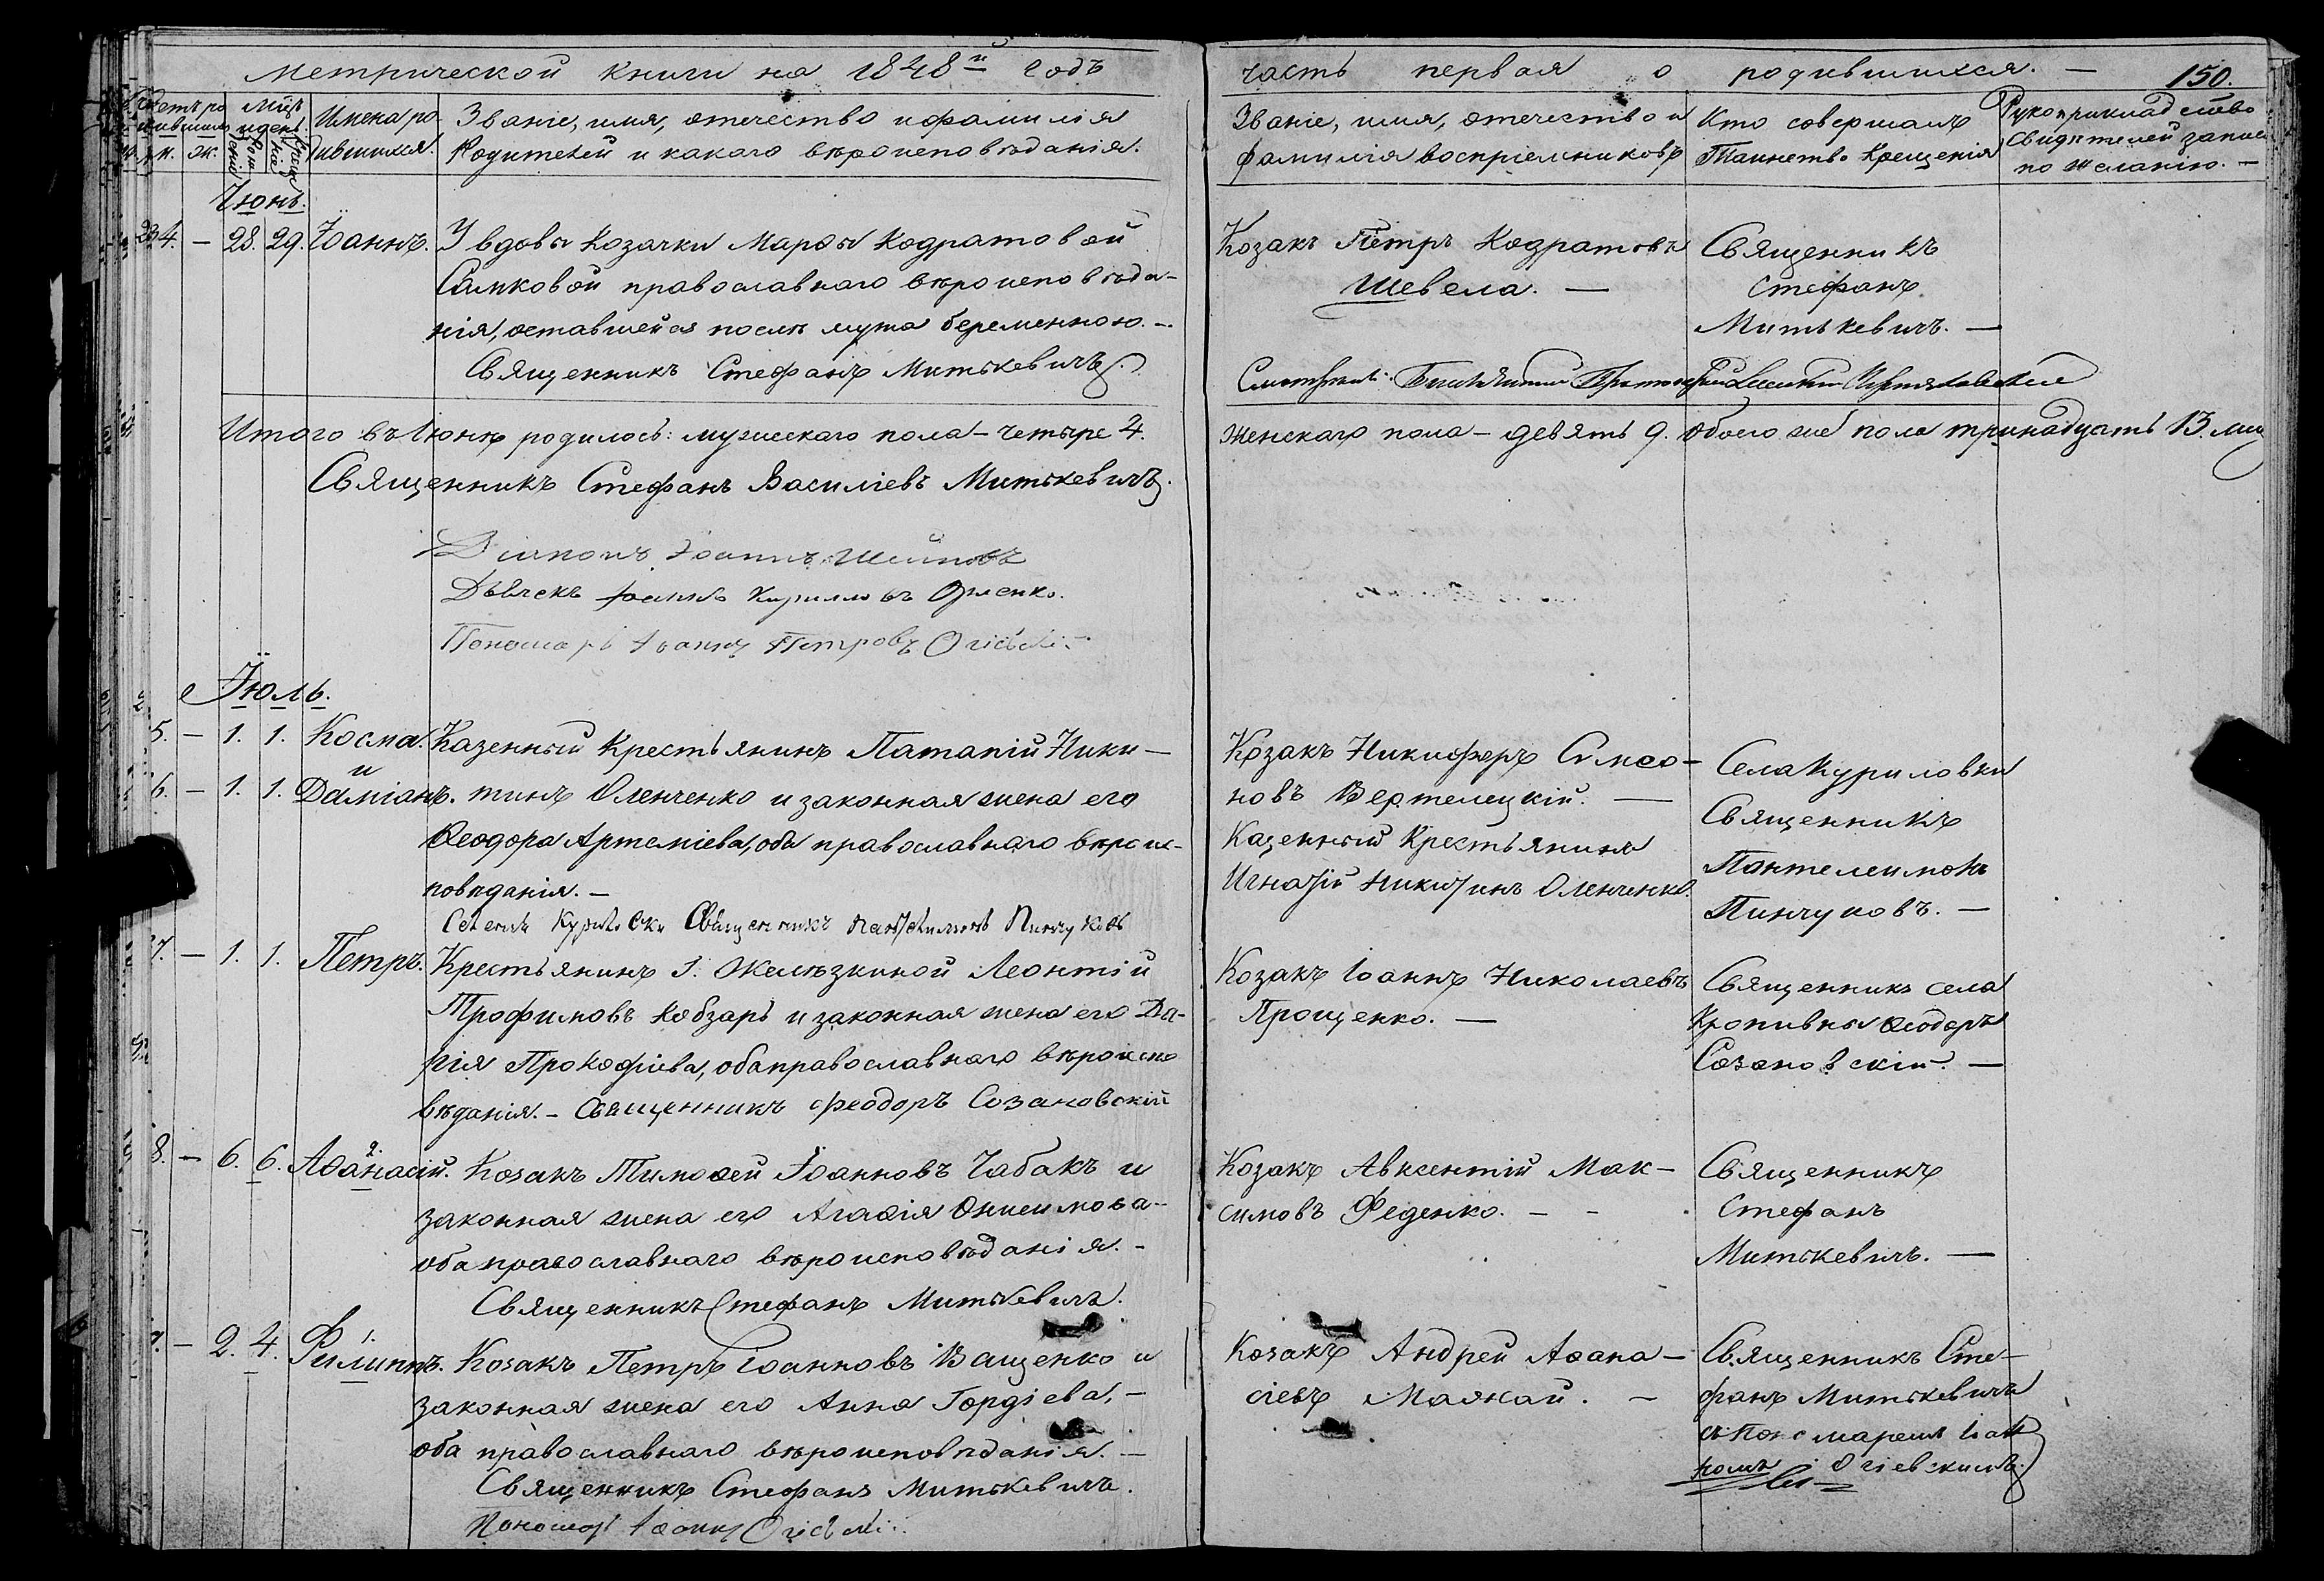 Метрической книги на 1848й годъ
часть первая о родившихся. — 150.
Имена родившихся.
Званіе, имя, отечество и фамилія
Родителей и какаго вѣроисповѣданія.
Званіе, имя, отечество и
фамилія воспріемниковъ
Кто совершалъ
Таинство Крещенія
Рукоприкладство
свидѣтелей записи
по желанію. —
Іюнь.
4. — 28. 29. Іоаннъ. У вдовы Козачки Марѳы Кодратовой
Самковой православнаго вѣроисповѣда-
нія, оставшейся послѣ мужа беременною. —
Священникъ Стефанъ Митькевичъ.
Козакъ Петръ Кодратовъ
Шевела. —
Священникъ
Стефанъ
Митькевичъ. —
Итого въ Іюнѣ родилось: мужескаго пола — четыре 4.
Женскаго пола — девять 9. Обоего же пола тринадцать 13.
Священникъ Стефанъ Василіевъ Митькевичъ.
Діаконъ Іоаннъ
Дьячекъ Іоаннъ Кирилловъ
Пономарь Іоаннъ Петровъ
Іюль.
5. — 1. 1. Косма.
и
6. — 1. 1. Даміанъ.
Казенный Крестьянинъ Патапій Ники-
тинъ Оленченко и законная жена его
Ѳеодора Артеміева, оба православнаго вѣроис-
повѣданія. —
Священникъ Пинчуковъ
Козакъ Никифоръ Симео-
новъ Вертелецкій. —
Казенный Крестьянинъ
Игнатій Никитинъ Оленченко.
Села Куриловки
Священникъ
Пантелеимонъ
Пинчуковъ. —
7. — 1. 1. Петръ. Крестьянинъ Г. Желѣзкиной Леонтій
Трофимовъ Кобзарь и законная жена его Да-
рія Прокофіева, оба православнаго вѣроиспо
вѣданія. — Священникъ Феодоръ Созановскій
Козакъ Іоаннъ Николаевъ
Прощенко. —
Священникъ села
Кропивны Ѳеодоръ
Созановскій. —
8. — 6. 6. Аѳанасій. Козакъ Тимоѳей Іоанновъ Чабакъ и
законная жена его Агаѳія Онисимова —
оба православнаго вѣроисповѣданія. —
Священникъ Стефанъ Митькевичъ.
Козакъ Авксентій Мак-
симовъ Феденко. — -
Священникъ
Стефанъ
Митькевичъ. —
— 2. 4. Филиппъ. Козакъ Петръ Іоанновъ Ващенко и
законная жена его Анна Гордіева, —
оба православнаго вѣроисповѣданія. —
Священникъ Стефанъ Митькевичъ.
Пономарь Іоаннъ
Козакъ Андрей Аѳана-
сіевъ Маякай. —
Священникъ Сте-
фанъ Митькевичъ
съ Пономаремъ Іоан
номъ Огіевскимъ.